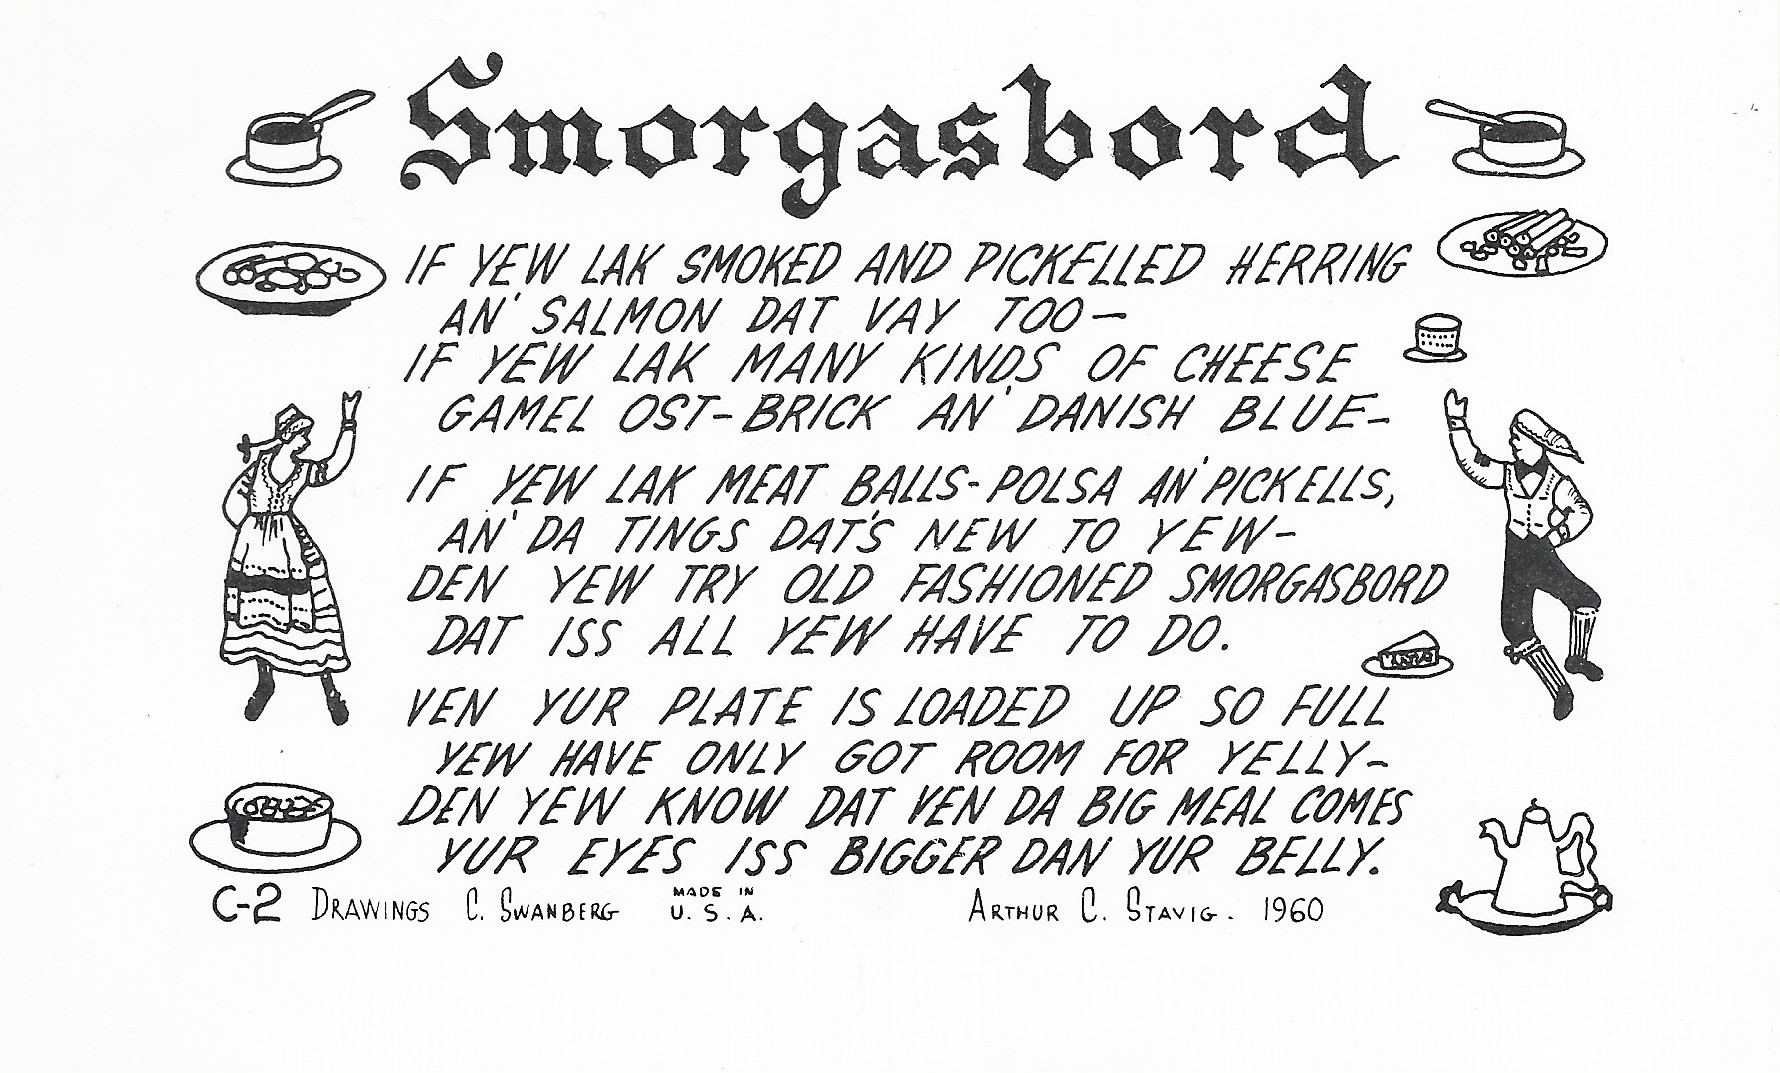 Smorgasbord
IF YEW LAK SMOKED AND PICKELLED HERRING
AN' SALMON DAT VAY TOO—
IF YEW LAK MANY KINDS OF CHEESE
GAMEL OST-BRICK AN' DANISH BLUE-
IF YEW LAK MEAT BALLS-POLSA AN' PICKELLS,
AN' DA TINGS DAT'S NEW TO YEW-
DEN YEW TRY OLD FASHIONED SMORGASBORD
DAT ISS ALL YEW HAVE TO DO.
VEN YUR PLATE IS LOADED UP SO FULL
YEW HAVE ONLY GOT ROOM FOR YELLY-
DEN YEW KNOW DAT VEN DA BIG MEAL COMES
YUR EYES ISS BIGGER DAN YUR BELLY.
C-2 DRAWINGS C. SWANBERG MADE IN U.S.A. ARTHUR C. STAVIG. 1960